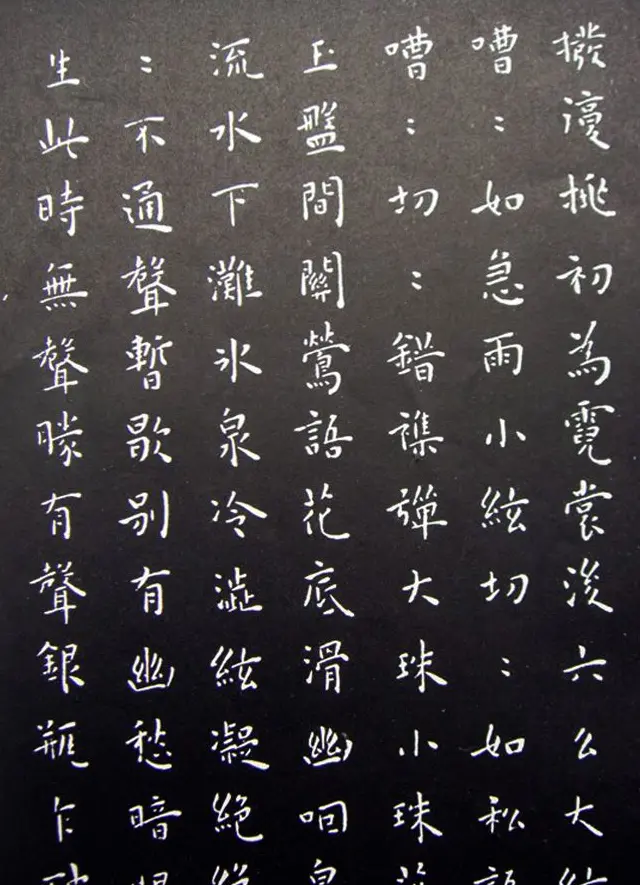 撥復挑初為霓裳後六么大絃
嘈:如急雨小絃切:如私語
嘈:切:錯雜彈大珠小珠落
玉盤間關鶯語花底滑幽咽泉
流水下灘氷泉冷澁絃凝絶
:不通聲暫歇別有幽愁暗恨
生此時無聲勝有聲銀瓶乍破